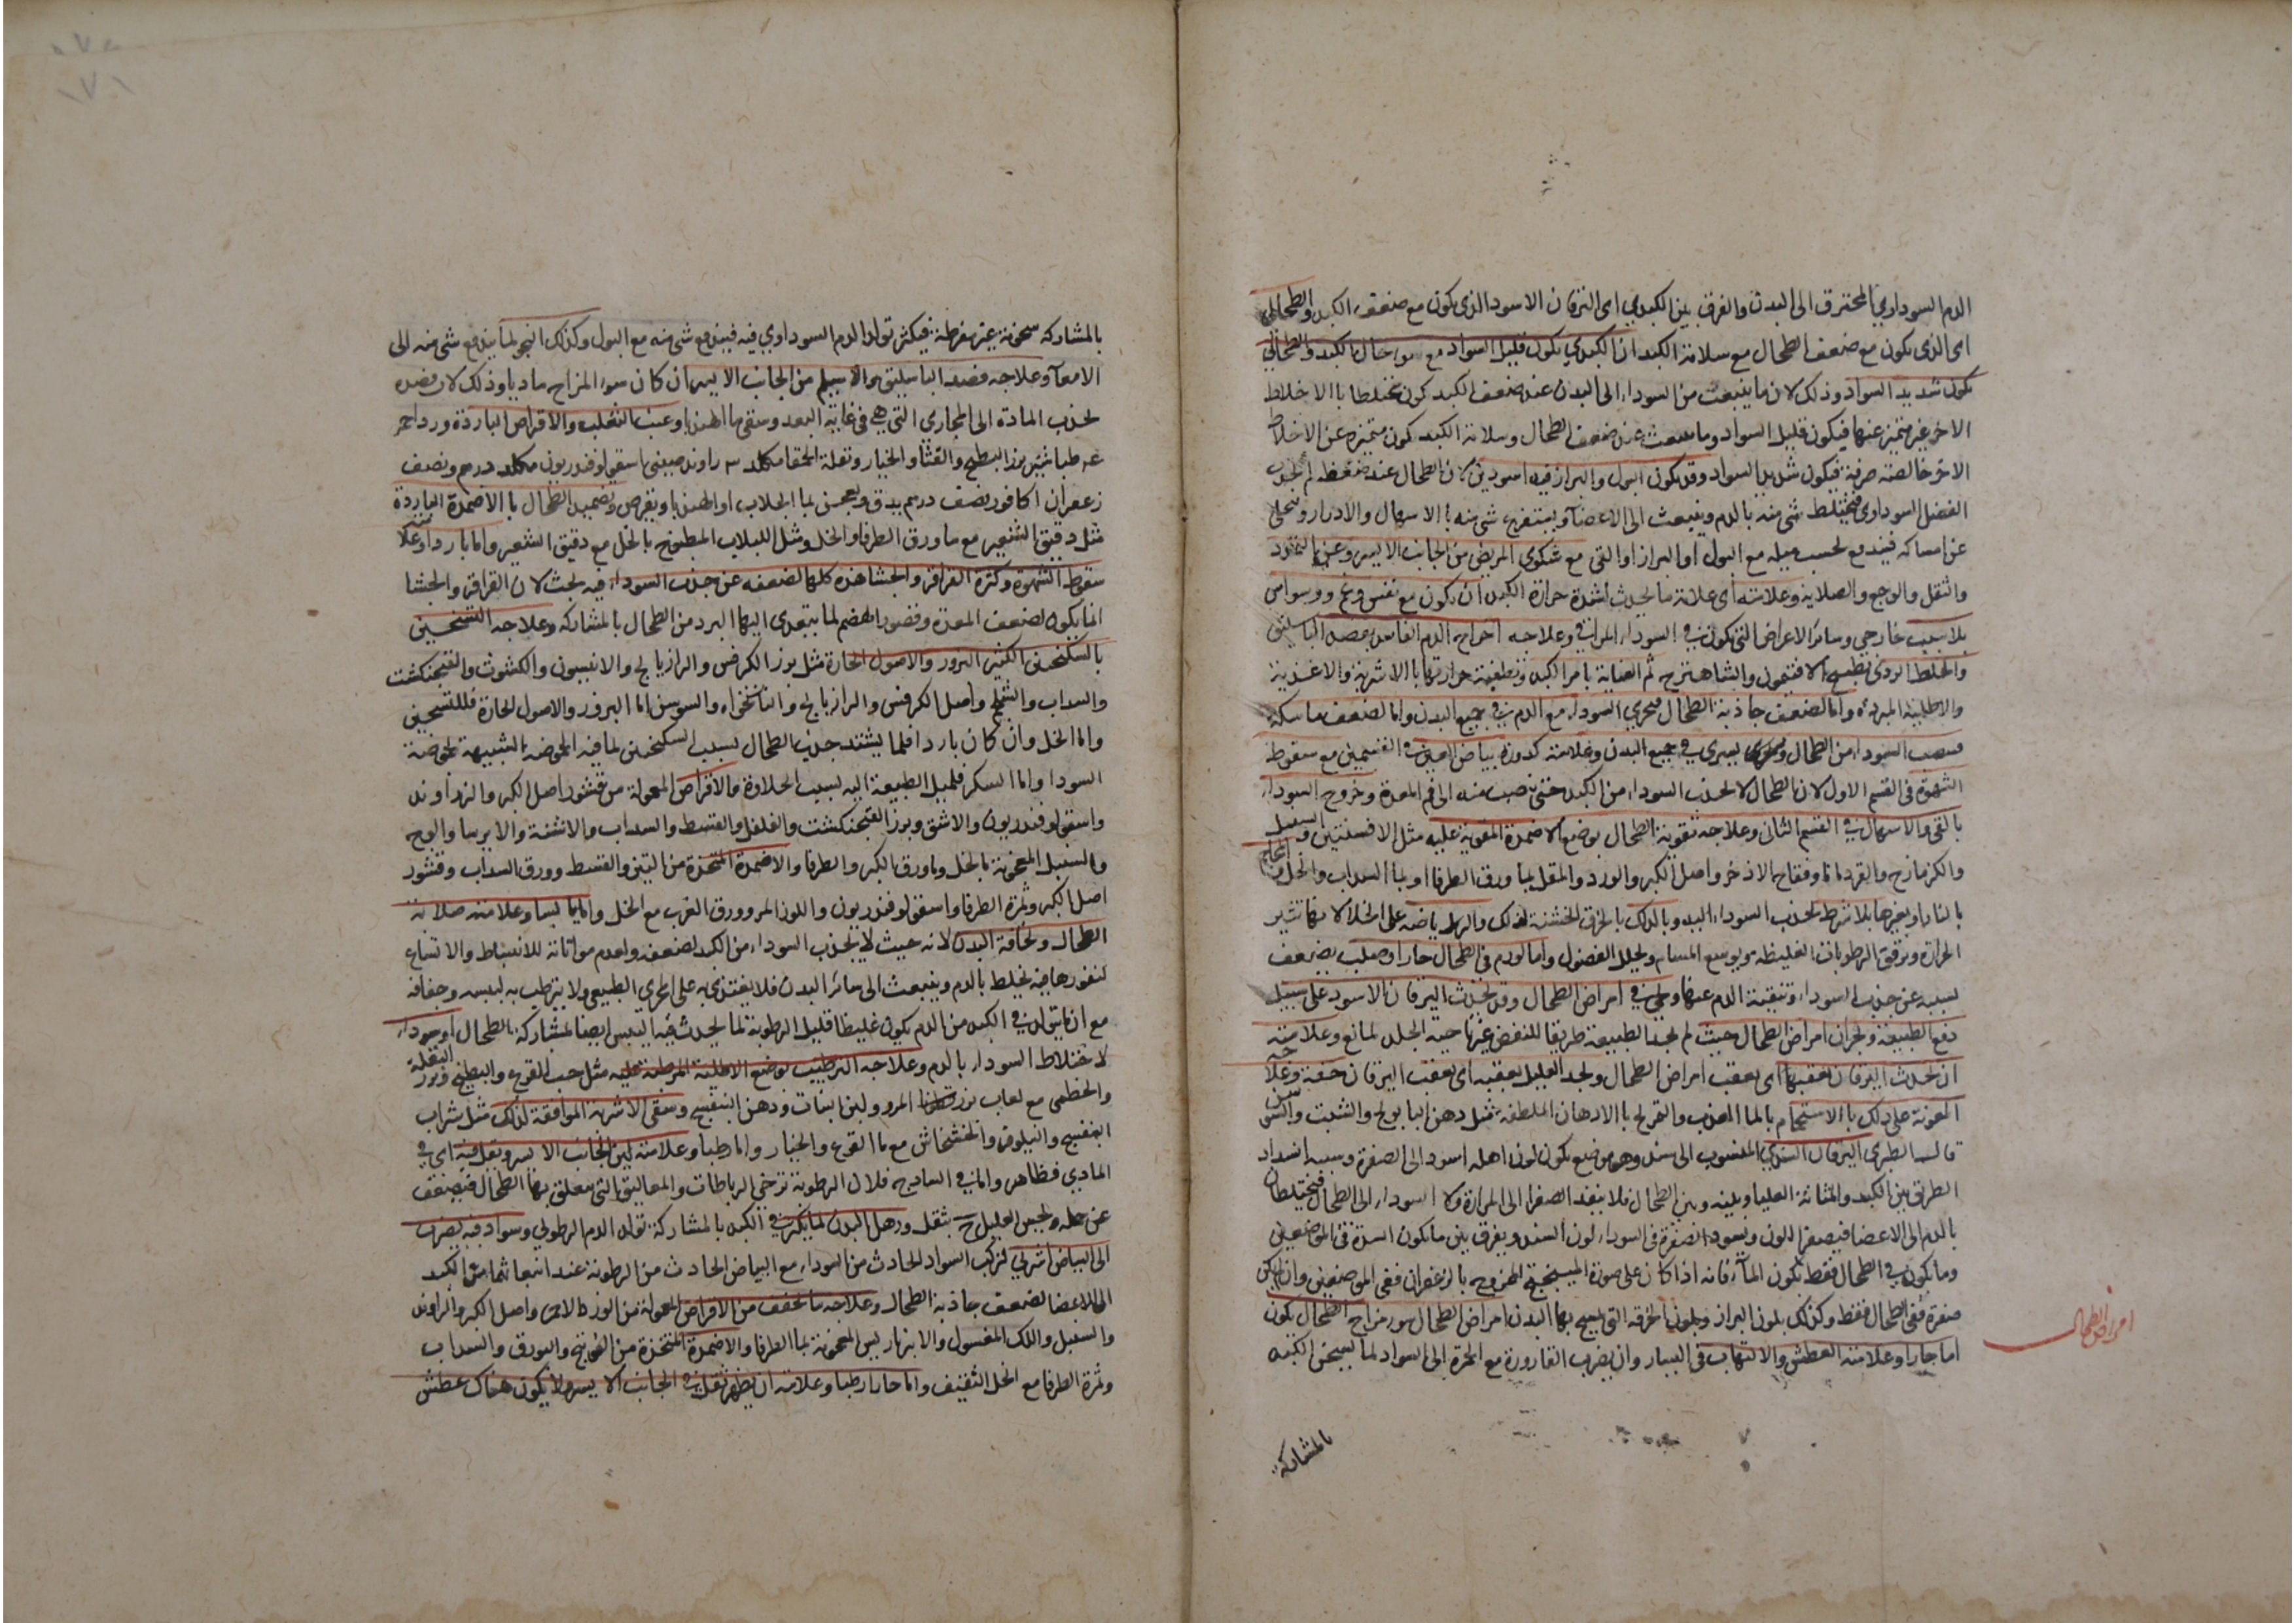 الدم السوداوي المحترق الى البدن والفرق بين الكبدي اى اليرقان الاسود الذى يكون مع ضعف الكبد والطحالي
اى الذى يكون مع ضعف الطحال مع سلامة الكبد ان الكبدي يكون قليل السواد مع سوء حال الكبد والطحالي
يكون شديد السواد وذلك لان ما ينبعث من السوداء الى البدن عند ضعف الكبد يكون مختلطا با الاخلاط
الاخر غير متميز عنها فيكون قليل السواد وما ينبعث عند ضعف الطحال وسلامة الكبد يكون متميزه عن الاخلاط
الاخر خالصة صرفة فيكون شديد السواد وقد يكون البول والبراز فيه اسودين لان الطحال عند ضعفه لم يجذب
الفضل السوداوى فيختلط شى منه بالدم وينبعث الى الاعضا ويستفرغ شى منه با الاسهال والادرار ويتخلى
عن امساكه فيندفع بحسب ميله مع البول او البراز او التى مع شكوى المريض من الجانب الايسر وعن التمدد
والثقل والوجع والصلابة وعلامته اى علامة ما يحدث لشدة حرارة الكبد ان يكون مع نفس وغم ووسواس
بلا سبب خارجي وسائر الاعراض التى تكون في السوداء المراقي وعلاجه اخراج الدم الفاسد بفصد الباسليق
والخلط الردى بطبيخ الافتيمون والشاهترج ثم العناية بامر الكبد وتطفية حرارتها با الاشربة والاغذية
والاطلية المبردة واما لضعف جاذبة الطحال فيجري السوداء مع الدم في جميع البدن واما لضعف ماسكته
فينصب السوداء من الطحال ويسري في جميع البدن وعلامته كدورة بياض العين في القسمين مع سقوط
الشهوة فى القسم الاول لان الطحال لا يجذب السوداء من الكبد حتى ينصب منه الى فم المعدة وخروج السوداء
بالقى والاسهال في القسم الثانى وعلاجه تقوية الطحال بوضع الاضمدة المقوية عليه مثل الافسنتين والسنبل
والكزمازج والقردمانا وفقاح الاذخر واصل الكبر والورد والمقل بما ورق الطرفا او بما السداب والخل والمحاجم
بالنار او بغيرها بلا شرط لجذب السوداء اليه وبالدلك بالخرق الخشنة لذلك والرياضه على الخلا لانها تثير
الحرارة وترقق الرطوبات الغليظه ويوسع المسام ويحلل الفضول واما لورم فى الطحال حار او صلب يضعف
بسببه عن جذب السوداء وتنقية الدم عنها ويجئ في امراض الطحال وقد يحدث اليرقان الاسود على سبيل
دفع الطبيعة وبحران امراض الطحال حيث لم يجد الطبيعة طريقا للنفض غير ناحية الجلد لمانع وعلامته
ان يحدث اليرقان بعقبها اى بعقب امراض الطحال ويجد العليل بعقبه اى بعقب اليرقان خفة وعلاجه
المعونة على ذلك با الاستحمام بالما العذب والتمريخ با الادهان الملطفة مثل دهن البابونج والشبت والسوسن
قال الطبرى اليرقان السندي المنسوب الى سند وهو موضع يكون لون اهله اسود الى الصفرة وسببه انسداد
الطريق بين الكبد والمثانة العليا وبينه وبين الطحال فلا ينفذ الصفرا الى المرارة ولا السوداء الى الطحال فيختلطان
بالدم الى الاعضا فيصفر اللون ويسود الصفرة فى السوداء لون السند ويفرق بين ما يكون السدة فى الموضعين
وما يكون في الطحال فقط بكون الماء فانه اذا كان على صورة الميبختج الممزوج بالزعفران ففى الموضعين وان لم يكن
صفرة ففى الطحال فقط وكذلك بلون البراز وبلون الخرقه التى يمسح بها البدن امراض الطحال سوء مزاج الطحال يكون
اما حارا وعلامته العطش والالتهاب فى اليسار وان يضرب القارورة مع الحمرة الى السواد لما يسخن الكبد
امراض الطحال
بالمشاركة
بالمشاركه سخونة غير مفرطة فيكثر تولد الدم السوداوي فيه فيندفع شى منه مع البول وكذلك النجو لما يندفع شى منه الى
الامعا وعلاجه فصد الباسليق والاسيلم من الجانب الايسر ان كان سوء المزاج ماديا وذلك لان فصده
يجذب المادة الى المجارى التى هى فى غاية البعد وسقى ما الهندبا وعنب الثعلب والاقراص الباردة ورد احمر
طباشير بزر البطيخ والقثا والخيار وبقلة الحمقا من كلد راوند صينى اسقولوفندريون من كلد درهم ونصف
زعفران كافور نصف درهم يدق ويعجن بما الجلاب او الهندبا ويقرص وتضميد الطحال با الاضمدة الباردة
مثل دقيق الشعير مع ما ورق الطرفا والخل ومثل اللبلاب المطبوخ بالخل مع دقيق الشعير واما باردا وعلامته
سقوط الشهوة وكثرة القراقر والجشا هذه كلها لضعفه عن جذب السوداء فيه بحث لان القراقر والجشا
انما يكون لضعف المعدة وقصور الهضم لما يتعدى اليها البرد من الطحال بالمشاركه وعلاجه التسخين
بالسكنجبين الكثير البزور والاصول الحارة مثل بزر الكرفس والرازيانج والانيسون والكشوث والفنجنكشت
والسداب والشيح واصل الكرفس والرازيانج والنانخواه والسوسن اما البزور والاصول الحارة فللتسخين
واما الخل وان كان باردا فلما يشتد جذب الطحال بسبب السكنجبين لما فيه الحموضه الشبيهة لحموضة
السودا واما السكر فلميل الطبيعة اليه بسبب الحلاوة والاقراص المعمولة من قشور اصل الكبر والزراوند
واسقولوفندريون والاشق وبزر الفنجنكشت والفلفل والقسط والسداب والاشنة والايرسا والوج
والسنبل المعجونة بالخل وما ورق الكبر والطرفا والاضمدة المتخذة من التين والقسط وورق السداب وقشور
اصل الكبر وثمرة الطرفا واسقولوفندريون واللوز المر وورق الغرب مع الخل واما يابسا وعلامته صلابة
الطحال ونحافة البدن لانه حيث لا يجذب السوداء من الكبد لضعفه ولعدم مواتاته للانبساط والاتساع
لنفوذها فيه يخلط بالدم وينبعث الى سائر البدن فلا يغتذى به على المجرى الطبيعى ولا يترطب به ليبسه وجفافه
مع ان ما يتولد في الكبد من الدم يكون غليظا قليل الرطوبة لما يحدث فيه اليبس ايضا لمشاركة الطحال وسوداء
لاختلاط السوداء بالدم وعلاجه الترطيب بوضع الاطلية المرطبة عليه مثل حب القرع والبطيخ وبزر البقلة
والخطمى مع لعاب بزر قطونا المرو ولبن ابنات ودهن البنفسج وسقى الاشربة الموافقة لذلك مثل شراب
البنفسج والنيلوفر والخشخاش مع ما القرع والخيار واما رطبا وعلامته لين الجانب الايسر وثقل فيه اى في
المادي فظاهر واما في الساذج فلان الرطوبة ترخي الرباطات والمعاليق التى يتعلق بها الطحال فيضعف
عن حمله ويحس العليل ح بثقل ورهل البدن لما يكثر في الكبد بالمشاركة تولد الدم الرطوبي وسواد فيه يضرب
الى البياض اسربي لتركب السواد الحادث من السوداء مع البياض الحادث من الرطوبة عند انبعاثهما من الكبد
الى الاعضا لضعف جاذبة الطحال وعلاجه ما يجفف من الاقراص المعمولة من الورد الاحمر واصل الكبر والراوند
والسنبل واللك المغسول والانبرباريس المعجونة بما الطرفا والاضمدة المتخذة من الفوتنج والبورق والسداب
وثمرة الطرفا مع الخل الثقيف واما حارا رطبا وعلامته ان يظهر ثقل في الجانب الايسر ولا يكون هناك عطش